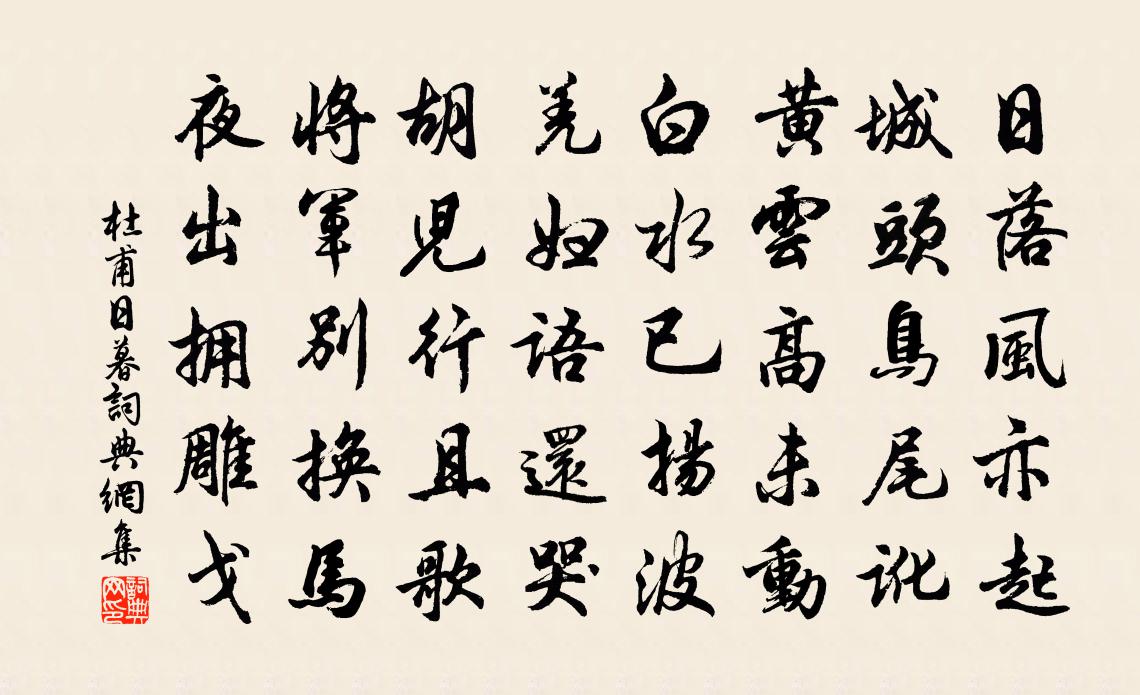 日落風亦起
城頭鳥尾訛
黃雲高未動
白水已揚波
羌婦語還哭
胡兒行且歌
將軍別換馬
夜出擁雕戈
杜甫日暮詞典網集
詞典网印